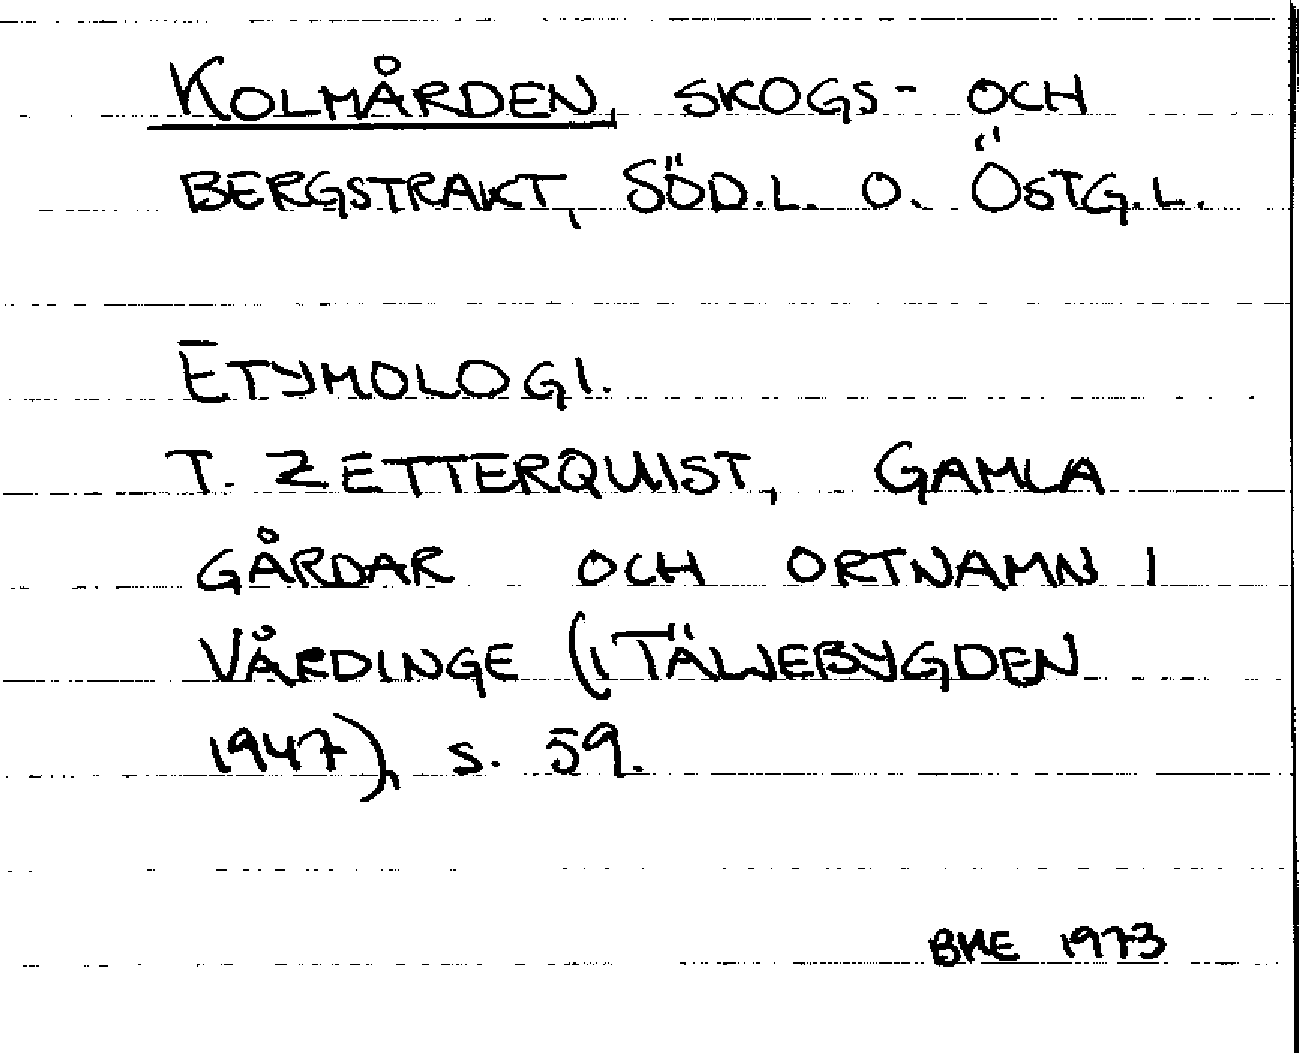 KOLMÅRDEN, SKOGS- OCH
BERGSTRAKT, SÖD.L. O. ÖSTG.L.
ETYMOLOGI.
T. ZETTERQUIST, GAMLA
GÅRDAR OCH ORTNAMN I
VÅRDINGE (I TÄLJEBYGDEN
1947), S. 59.
BKE 1973